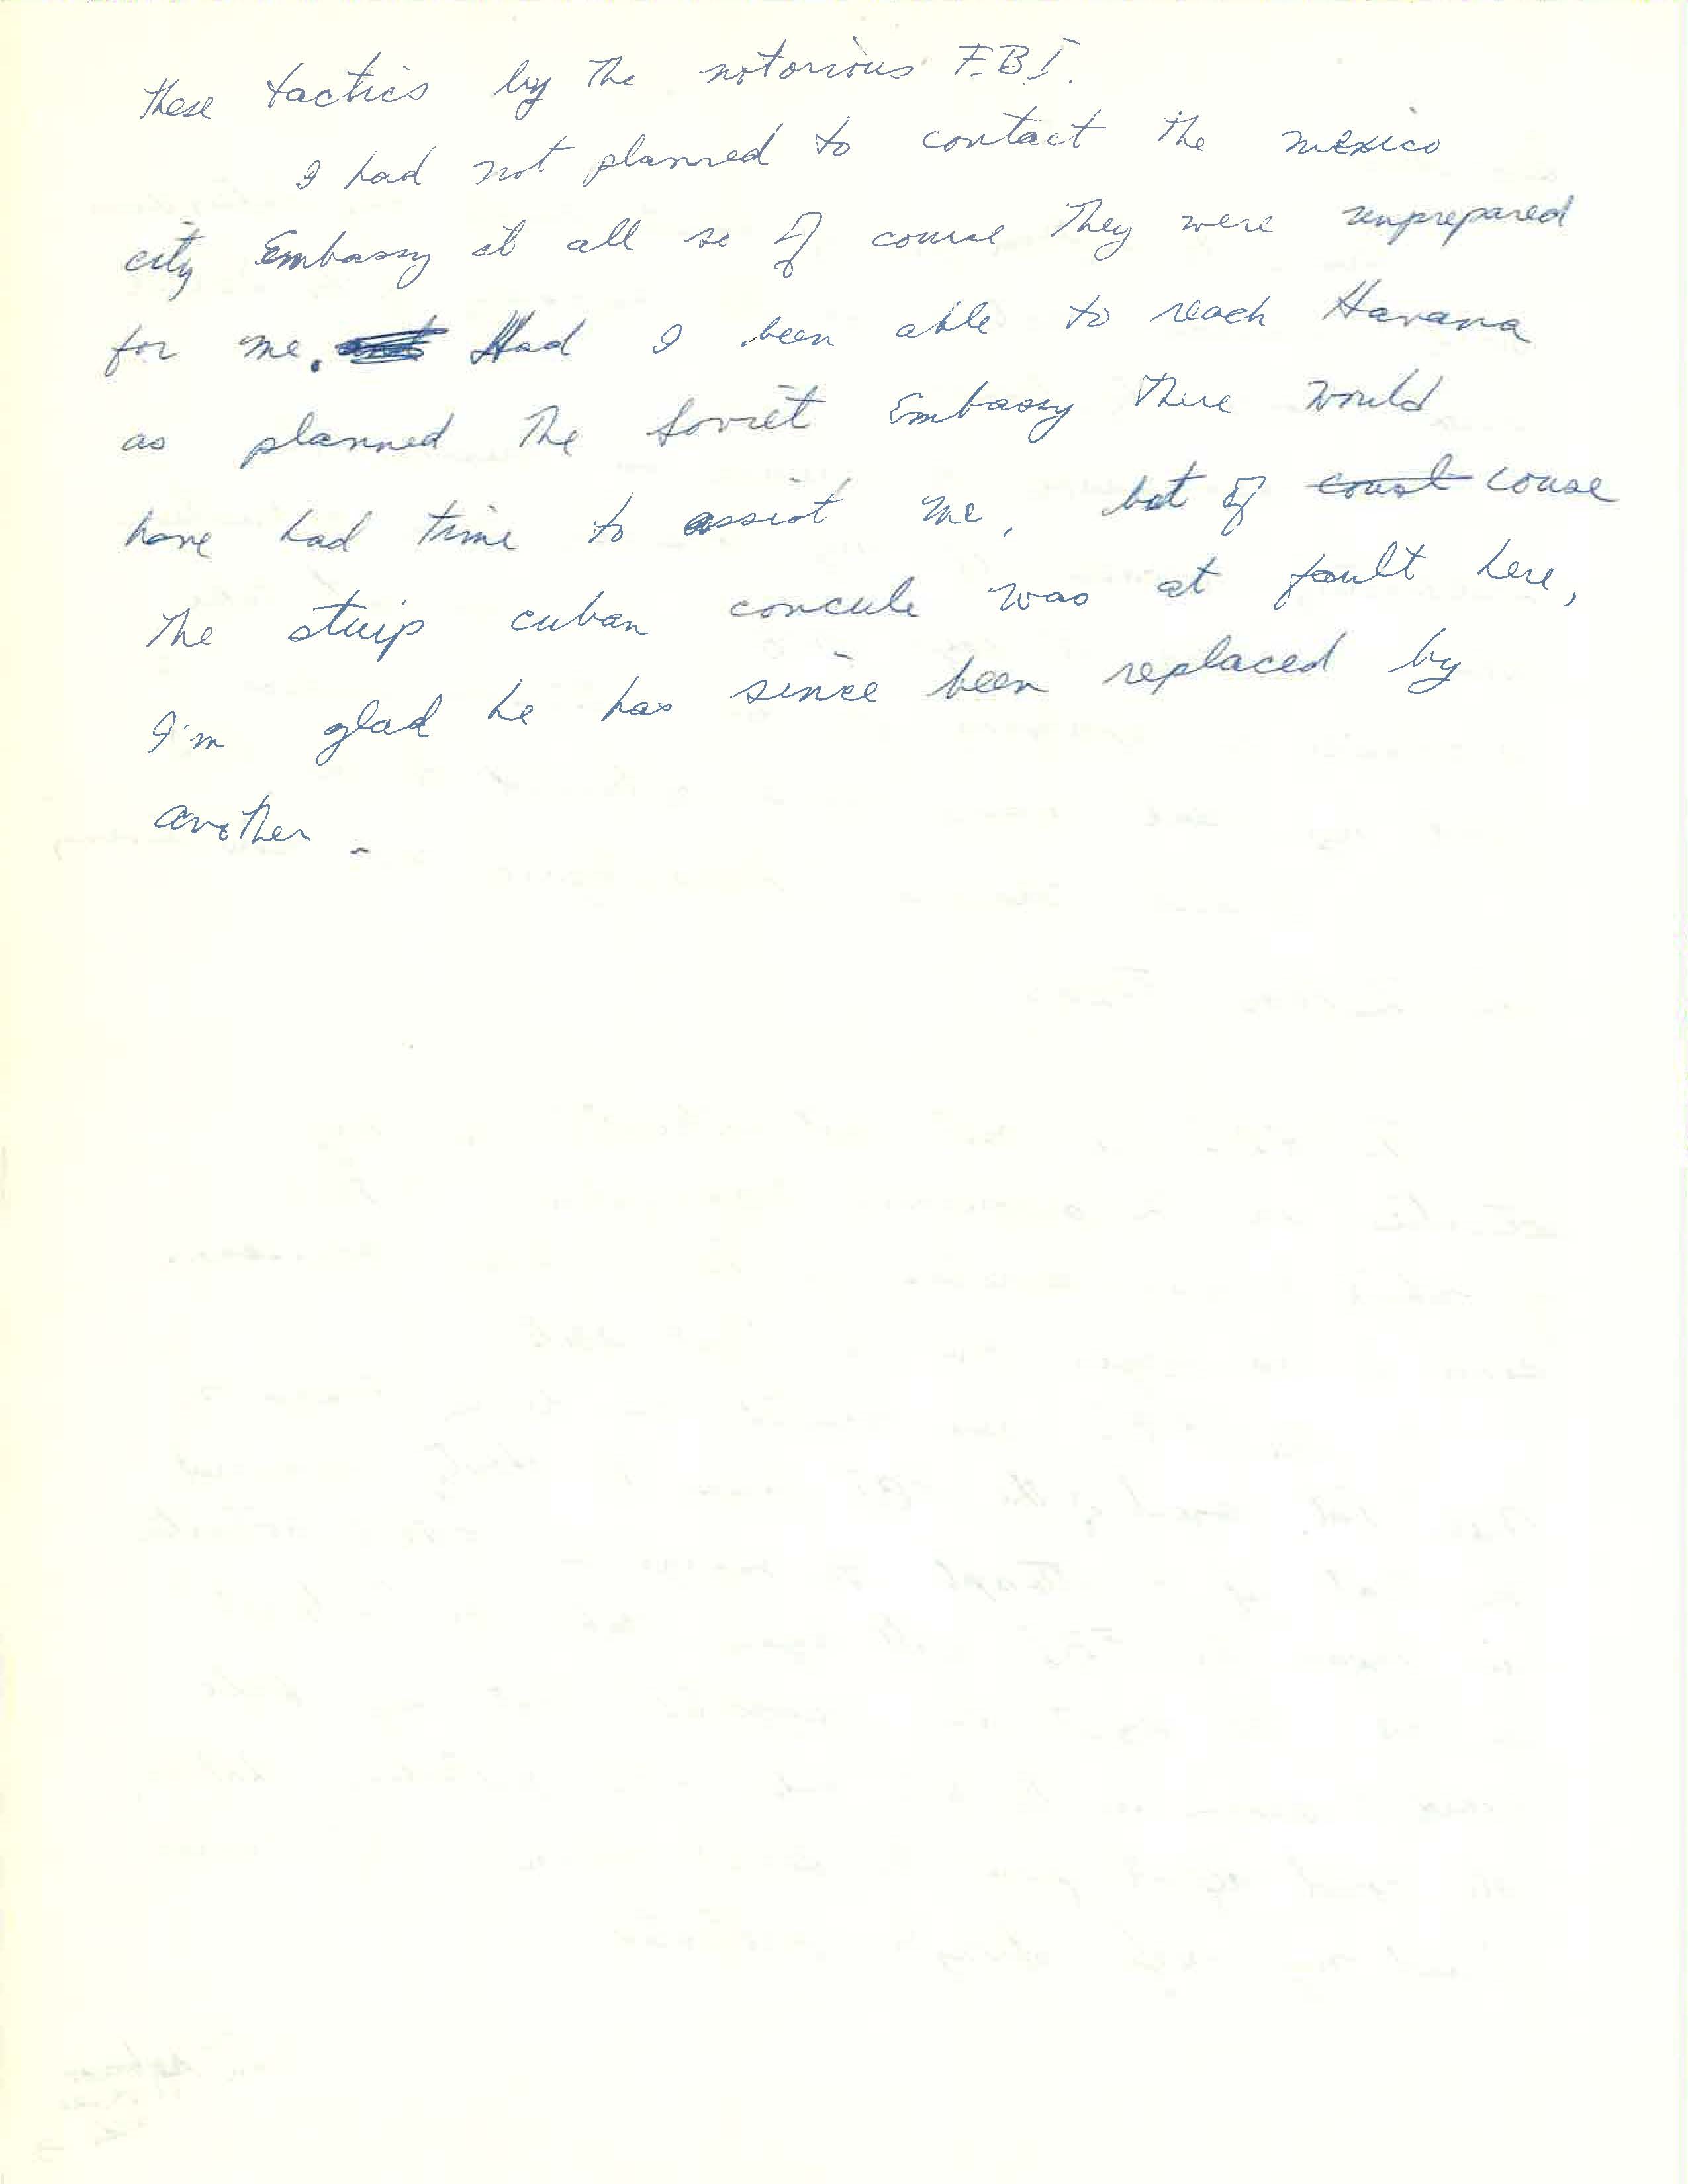 these tactics by the notorious F.B.I.
I had not planned to contact the mexico
city Embassy at all so of course they were unprepared
for me. Had I been able to reach Havana
as planned the Soviet Embassy there would
have had time to assist me, but of couse
the stuip cuban concule was at fault here,
I'm glad he has since been replaced by
another